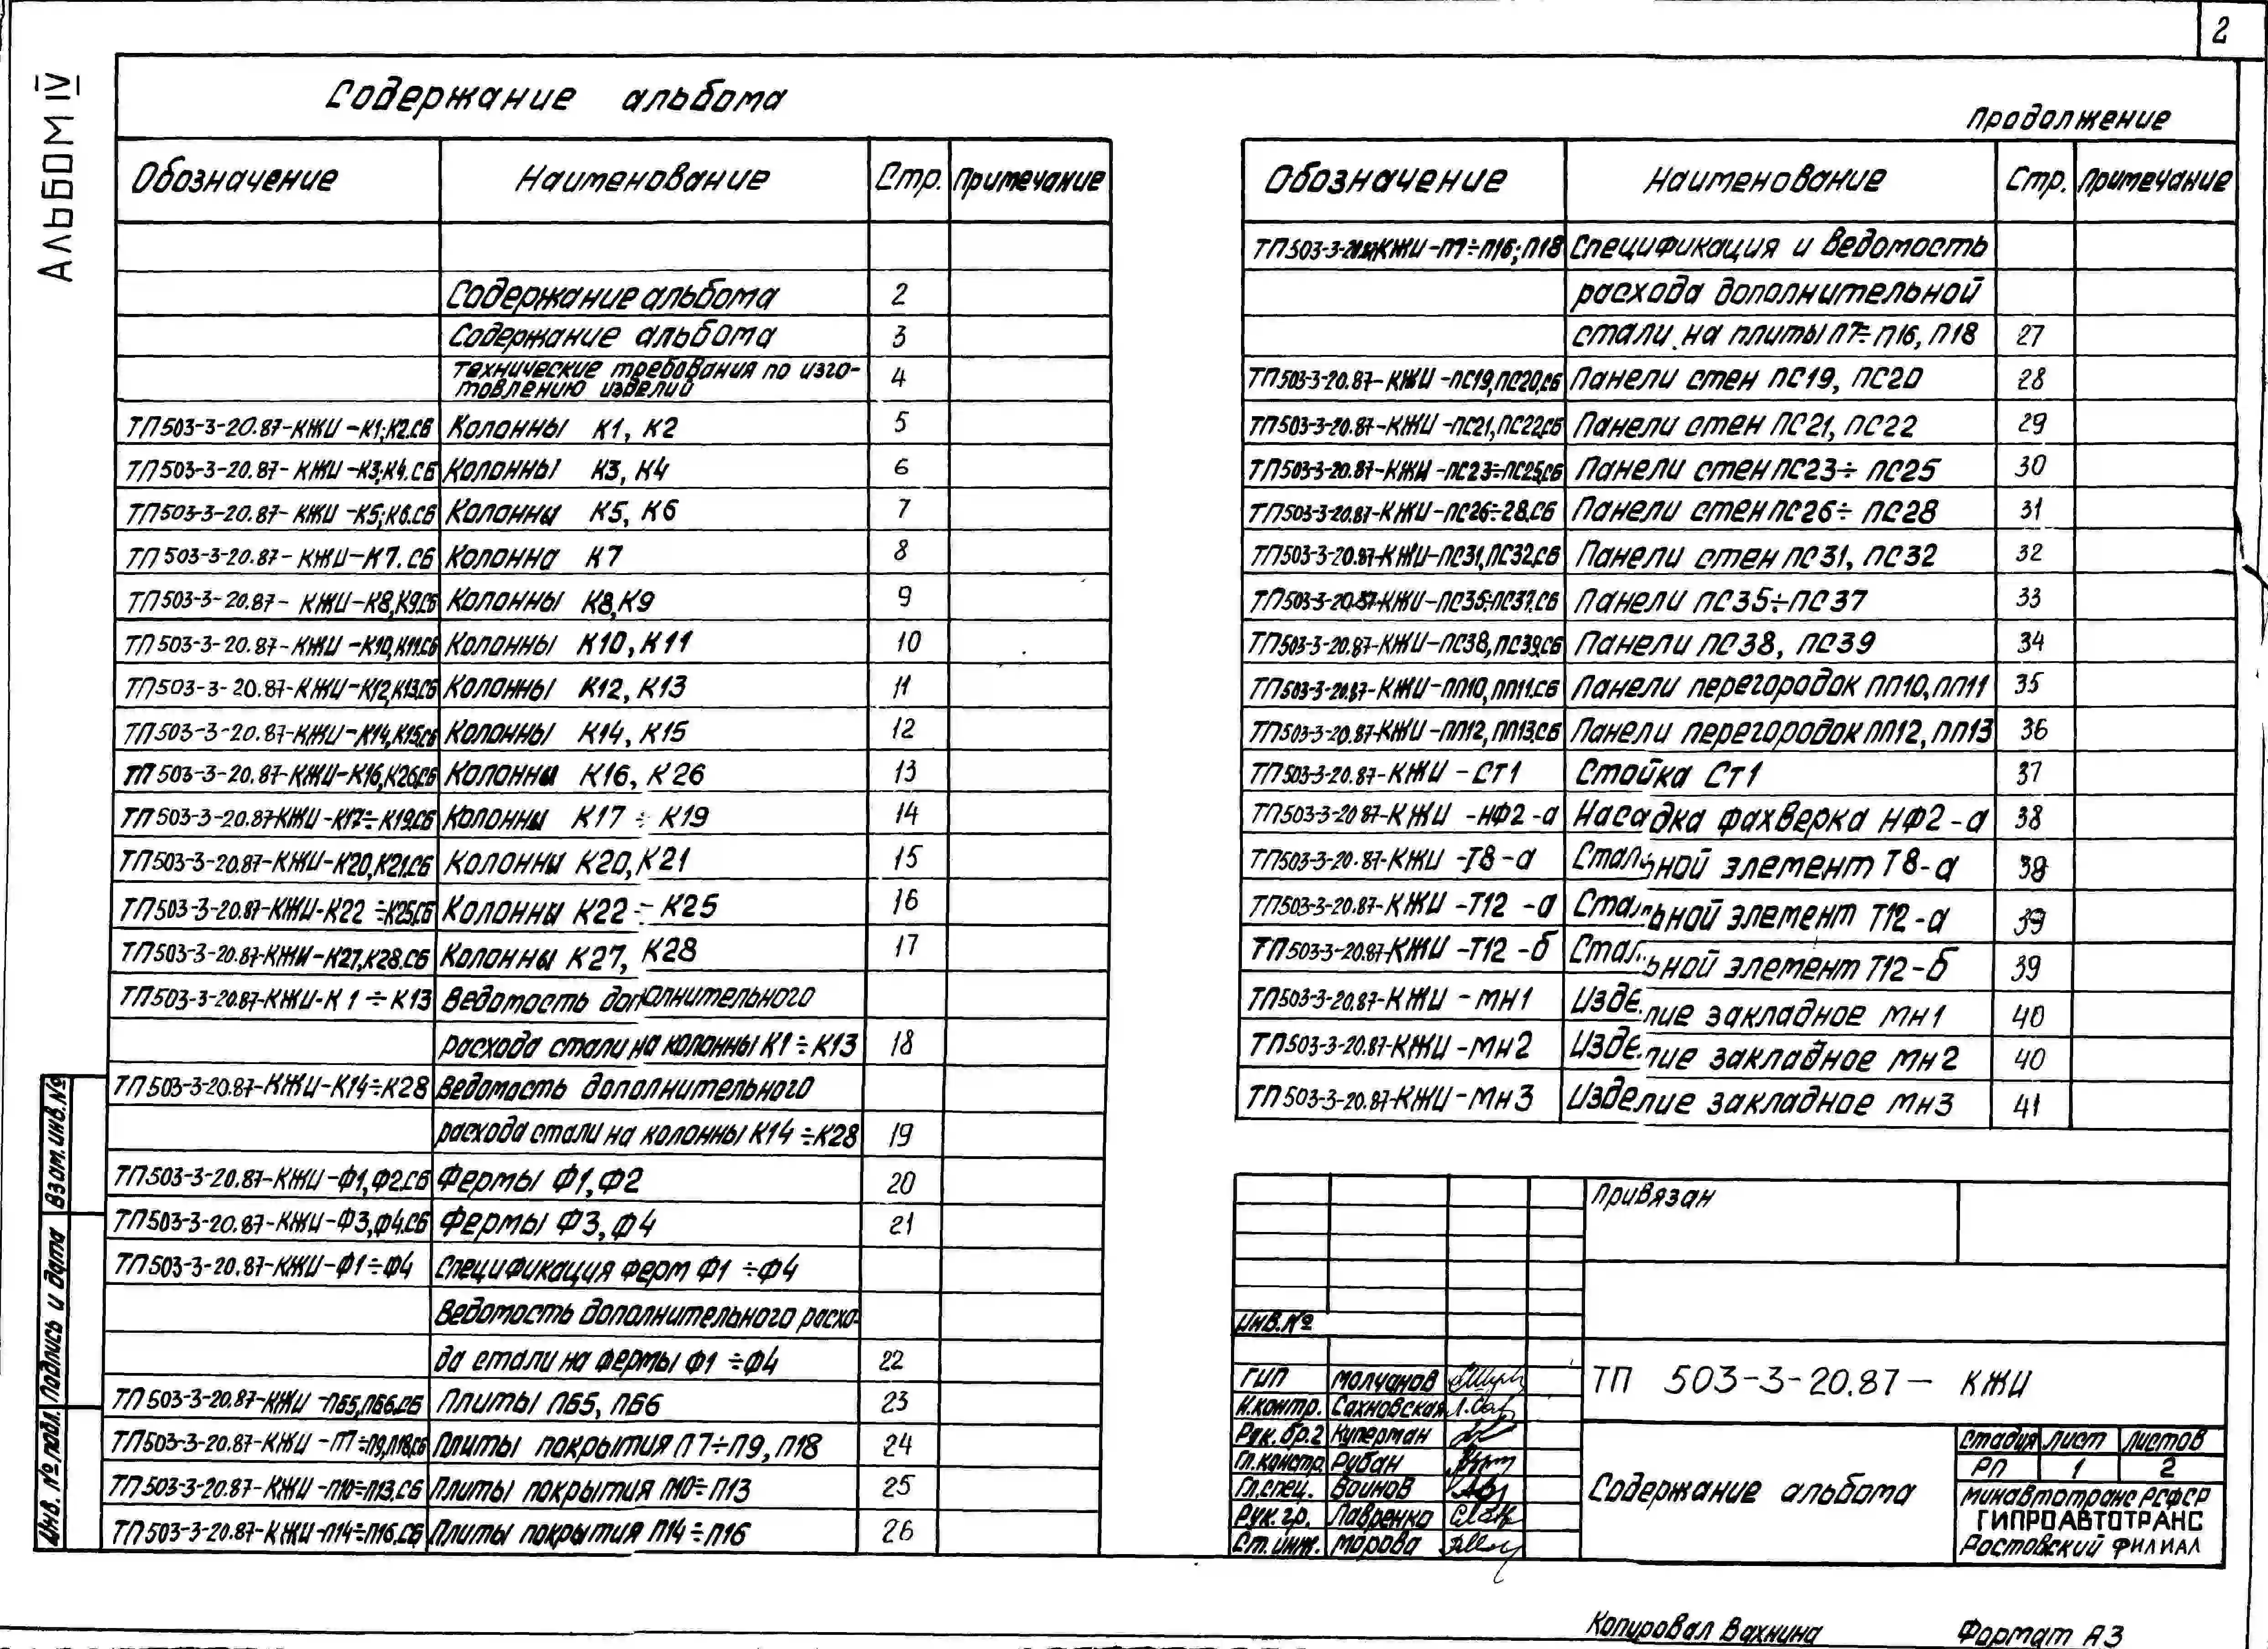 2
АЛЬБОМ IV
Содержание альбома
Обозначение Наименование Стр. Примечание
Содержание альбома 2
Содержание альбома 3
Технические требования по изго-
товлению изделий 4
ТП503-3-20.87-КЖИ-К1;К2.СБ Колонны К1, К2 5
ТП503-3-20.87-КЖИ-К3;К4.СБ Колонны К3, К4 6
ТП503-3-20.87-КЖИ-К5;К6.СБ Колонны К5, К6 7
ТП503-3-20.87-КЖИ-К7.СБ Колонна К7 8
ТП503-3-20.87-КЖИ-К8,К9.СБ Колонны К8,К9 9
ТП503-3-20.87-КЖИ-К10,К11.СБ Колонны К10,К11 10
ТП503-3-20.87-КЖИ-К12,К13.СБ Колонны К12, К13 11
ТП503-3-20.87-КЖИ-К14,К15.СБ Колонны К14, К15 12
ТП503-3-20.87-КЖИ-К16,К26.СБ Колонны К16, К26 13
ТП503-3-20.87-КЖИ-К17÷К19.СБ Колонны К17 ÷ К19 14
ТП503-3-20.87-КЖИ-К20,К21.СБ Колонны К20,К21 15
ТП503-3-20.87-КЖИ-К22÷К25.СБ Колонны К22 ÷ К25 16
ТП503-3-20.87-КЖИ-К27,К28.СБ Колонны К27, К28 17
ТП503-3-20.87-КЖИ-К1÷К13 Ведомость дополнительного
расхода стали на колонны К1÷К13 18
ТП503-3-20.87-КЖИ-К14÷К28 Ведомость дополнительного
расхода стали на колонны К14÷К28 19
ТП503-3-20.87-КЖИ-Ф1,Ф2.СБ Фермы Ф1,Ф2 20
ТП503-3-20.87-КЖИ-Ф3,Ф4.СБ Фермы Ф3,Ф4 21
ТП503-3-20.87-КЖИ-Ф1÷Ф4 Спецификация ферм Ф1÷Ф4
Ведомость дополнительного расхо-
да стали на фермы Ф1÷Ф4 22
ТП503-3-20.87-КЖИ-П65,П66.СБ Плиты П65, П66 23
ТП503-3-20.87-КЖИ-П7÷П9,П18.СБ Плиты покрытия П7÷П9, П18 24
ТП503-3-20.87-КЖИ-П10÷П13.СБ Плиты покрытия П10÷П13 25
ТП503-3-20.87-КЖИ-П14÷П16.СБ Плиты покрытия П14÷П16 26
Взам.инв.№
Подпись и дата
Инв. № подл.
Продолжение
Обозначение Наименование Стр. Примечание
ТП503-3-20.87-КЖИ-П7÷П16;П18 Спецификация и ведомость
расхода дополнительной
стали на плиты П7÷П16, П18 27
ТП503-3-20.87-КЖИ-ПС19,ПС20.СБ Панели стен ПС19, ПС20 28
ТП503-3-20.87-КЖИ-ПС21,ПС22.СБ Панели стен ПС21, ПС22 29
ТП503-3-20.87-КЖИ-ПС23÷ПС25.СБ Панели стен ПС23÷ПС25 30
ТП503-3-20.87-КЖИ-ПС26÷28.СБ Панели стен ПС26÷ПС28 31
ТП503-3-20.87-КЖИ-ПС31,ПС32.СБ Панели стен ПС31, ПС32 32
ТП503-3-20.87-КЖИ-ПС35÷ПС37.СБ Панели ПС35÷ПС37 33
ТП503-3-20.87-КЖИ-ПС38,ПС39.СБ Панели ПС38, ПС39 34
ТП503-3-20.87-КЖИ-ПП10,ПП11.СБ Панели перегородок ПП10,ПП11 35
ТП503-3-20.87-КЖИ-ПП12,ПП13.СБ Панели перегородок ПП12,ПП13 36
ТП503-3-20.87-КЖИ-СТ1 Стойка Ст1 37
ТП503-3-20.87-КЖИ-НФ2-а Насадка фахверка НФ2-а 38
ТП503-3-20.87-КЖИ-Т8-а Стальной элемент Т8-а 39
ТП503-3-20.87-КЖИ-Т12-а Стальной элемент Т12-а 39
ТП503-3-20.87-КЖИ-Т12-б Стальной элемент Т12-б 39
ТП503-3-20.87-КЖИ-МН1 Изделие закладное МН1 40
ТП503-3-20.87-КЖИ-МН2 Изделие закладное МН2 40
ТП503-3-20.87-КЖИ-МН3 Изделие закладное МН3 41
Привязан
Инв.№
ГИП Молчанов
Н.контр. Сахновская
Рук.бр.2 Куперман
Гл.констр. Рубан
Гл.спец. Воинов
Рук.гр. Лавренко
Ст.инж. Морова
ТП 503-3-20.87- КЖИ
Содержание альбома
Стадия Лист Листов
РП 1 2
Минавтотранс РСФСР
ГИПРОАВТОТРАНС
Ростовский филиал
Копировал Вахнина Формат А3